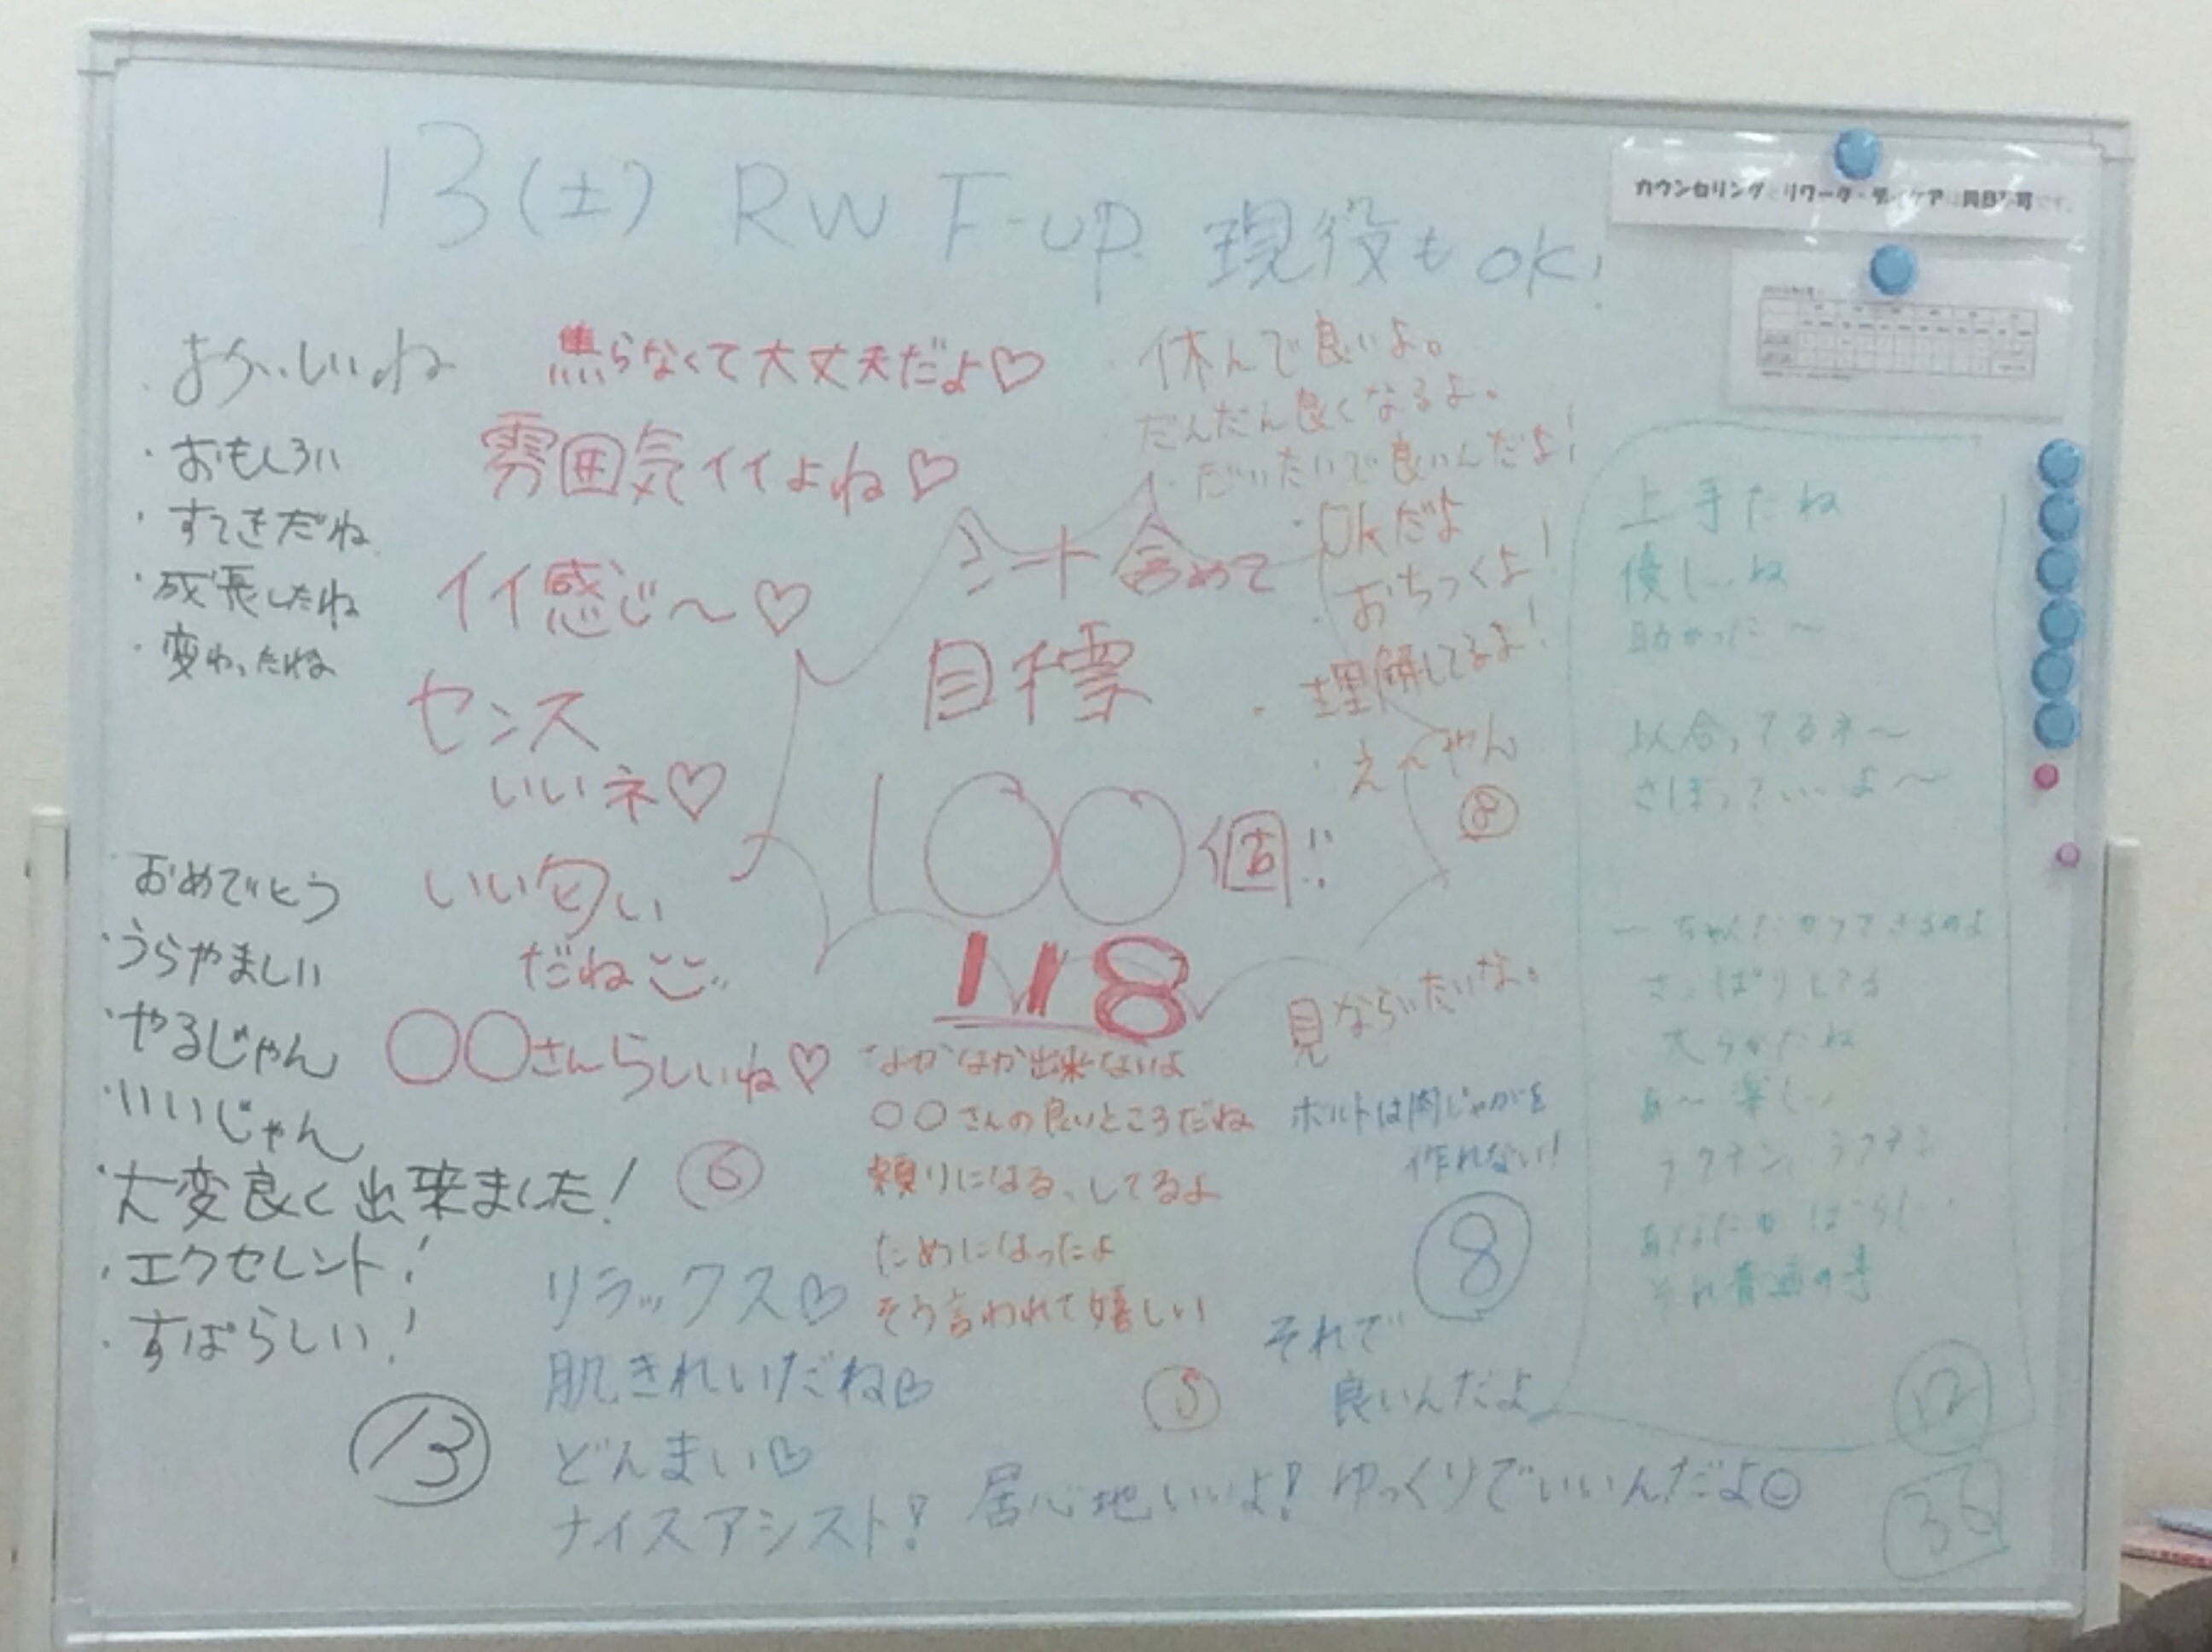 13(土) RW F-up 現役も OK!
カウンセリングとリワーク・デイケアは同日不可です。
・おもしろい
・すてきだね
・成長したね
・変わったね
おめでとう
・うらやましい
・やるじゃん
・いいじゃん
・大変良く出来ました!
・エクセレント!
・すばらしい!
⑬
焦らなくて大丈夫だよ♡
雰囲気イイよね♡
イイ感じ〜♡
センス
いいネ♡
いい匂い
だね
○○さんらしいね♡
⑥
シート含めて
目標
100個!!
118
・休んで良いよ。
・だんだん良くなるよ。
・だいたいで良いんだよ!
・OKだよ
・おちつくよ!
・理解してるよ!
・え〜やん
⑧
見ならいたいな。
なかなか出来ないよ
○○さんの良いところだね
頼りになる、してるよ
ためになったよ
そう言われて嬉しい
⑤
ボルトは肉じゃがを
作れない!
⑧
リラックス♡
肌きれいだね♡
どんまい♡
ナイスアシスト!
居心地いいよ!
それで
良いんだよ
ゆっくりでいいんだよ☺
上手だね
優しいね
助かった〜
似合ってるネ〜
さぼっていいよ〜
さっぱりしてる
あ〜楽しい
それ普通の事
⑫
36